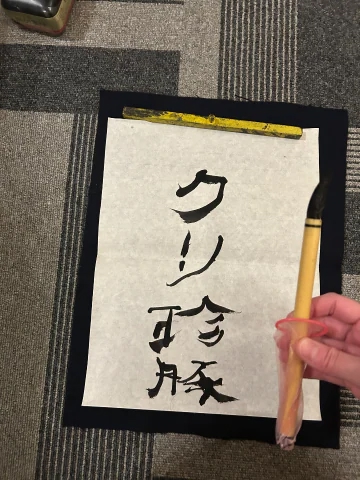 クリ珍豚